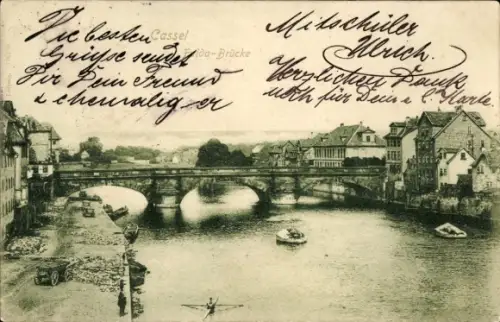 Cassel
Fulda-Brücke
Die besten
Grüsse sendet
Dir Dein Freund
& ehemaliger
Mitschüler
Ulrich.
Herzlichen Dank
noch für Deine l. Karte